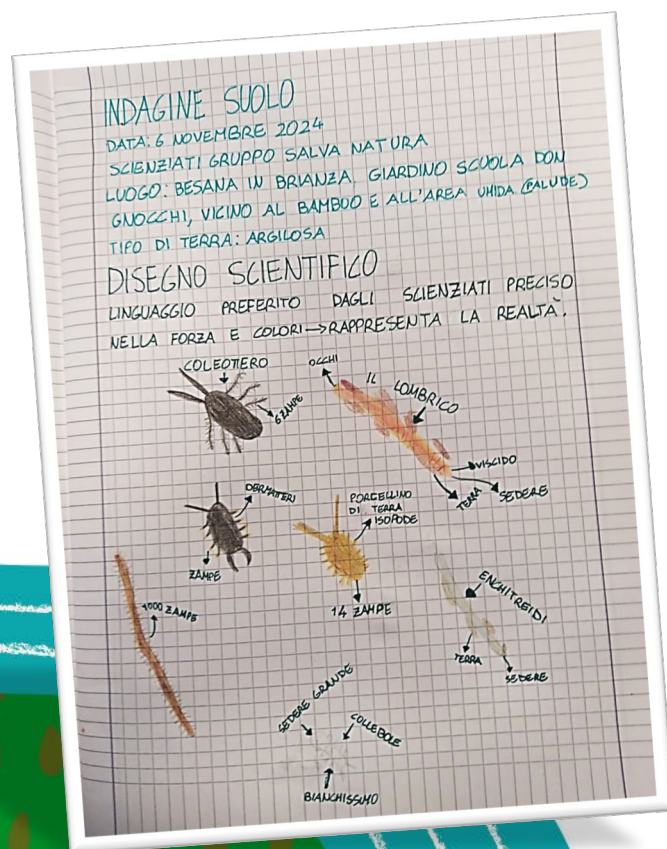 INDAGINE SUOLO
DATA: 6 NOVEMBRE 2024
SCIENZIATI GRUPPO SALVA NATURA
LUOGO: BESANA IN BRIANZA. GIARDINO SCUOLA DON
GNOCCHI, VICINO AL BAMBUO E ALL'AREA UMIDA (PALUDE)
TIPO DI TERRA: ARGILOSA
DISEGNO SCIENTIFICO
LINGUAGGIO PREFERITO DAGLI SCIENZIATI PRECISO
NELLA FORZA E COLORI → RAPPRESENTA LA REALTÀ.
COLEOTTERO
6 ZAMPE
OCCHI
IL LOMBRICO
VISCIDO
TERRA
SEDERE
DERMATTERI
ZAMPE
PORCELLINO
DI TERRA
ISOPODE
14 ZAMPE
1000 ZAMPE
ENCHITREIDI
TERRA
SEDERE
SEDERE GRANDE
COLLEBOLE
BIANCHISSIMO